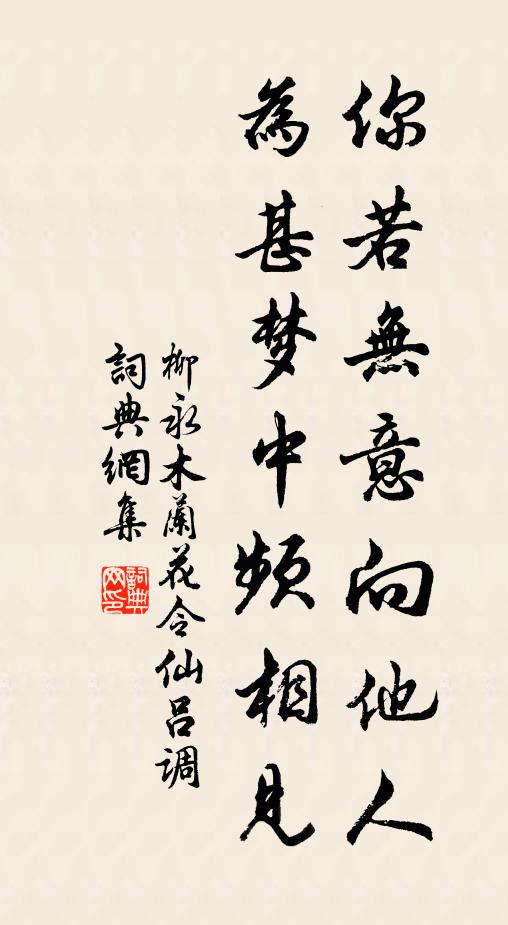 你若無意向他人
為甚梦中頻相見
柳永木蘭花令仙呂调
詞典網集
詞典
网印